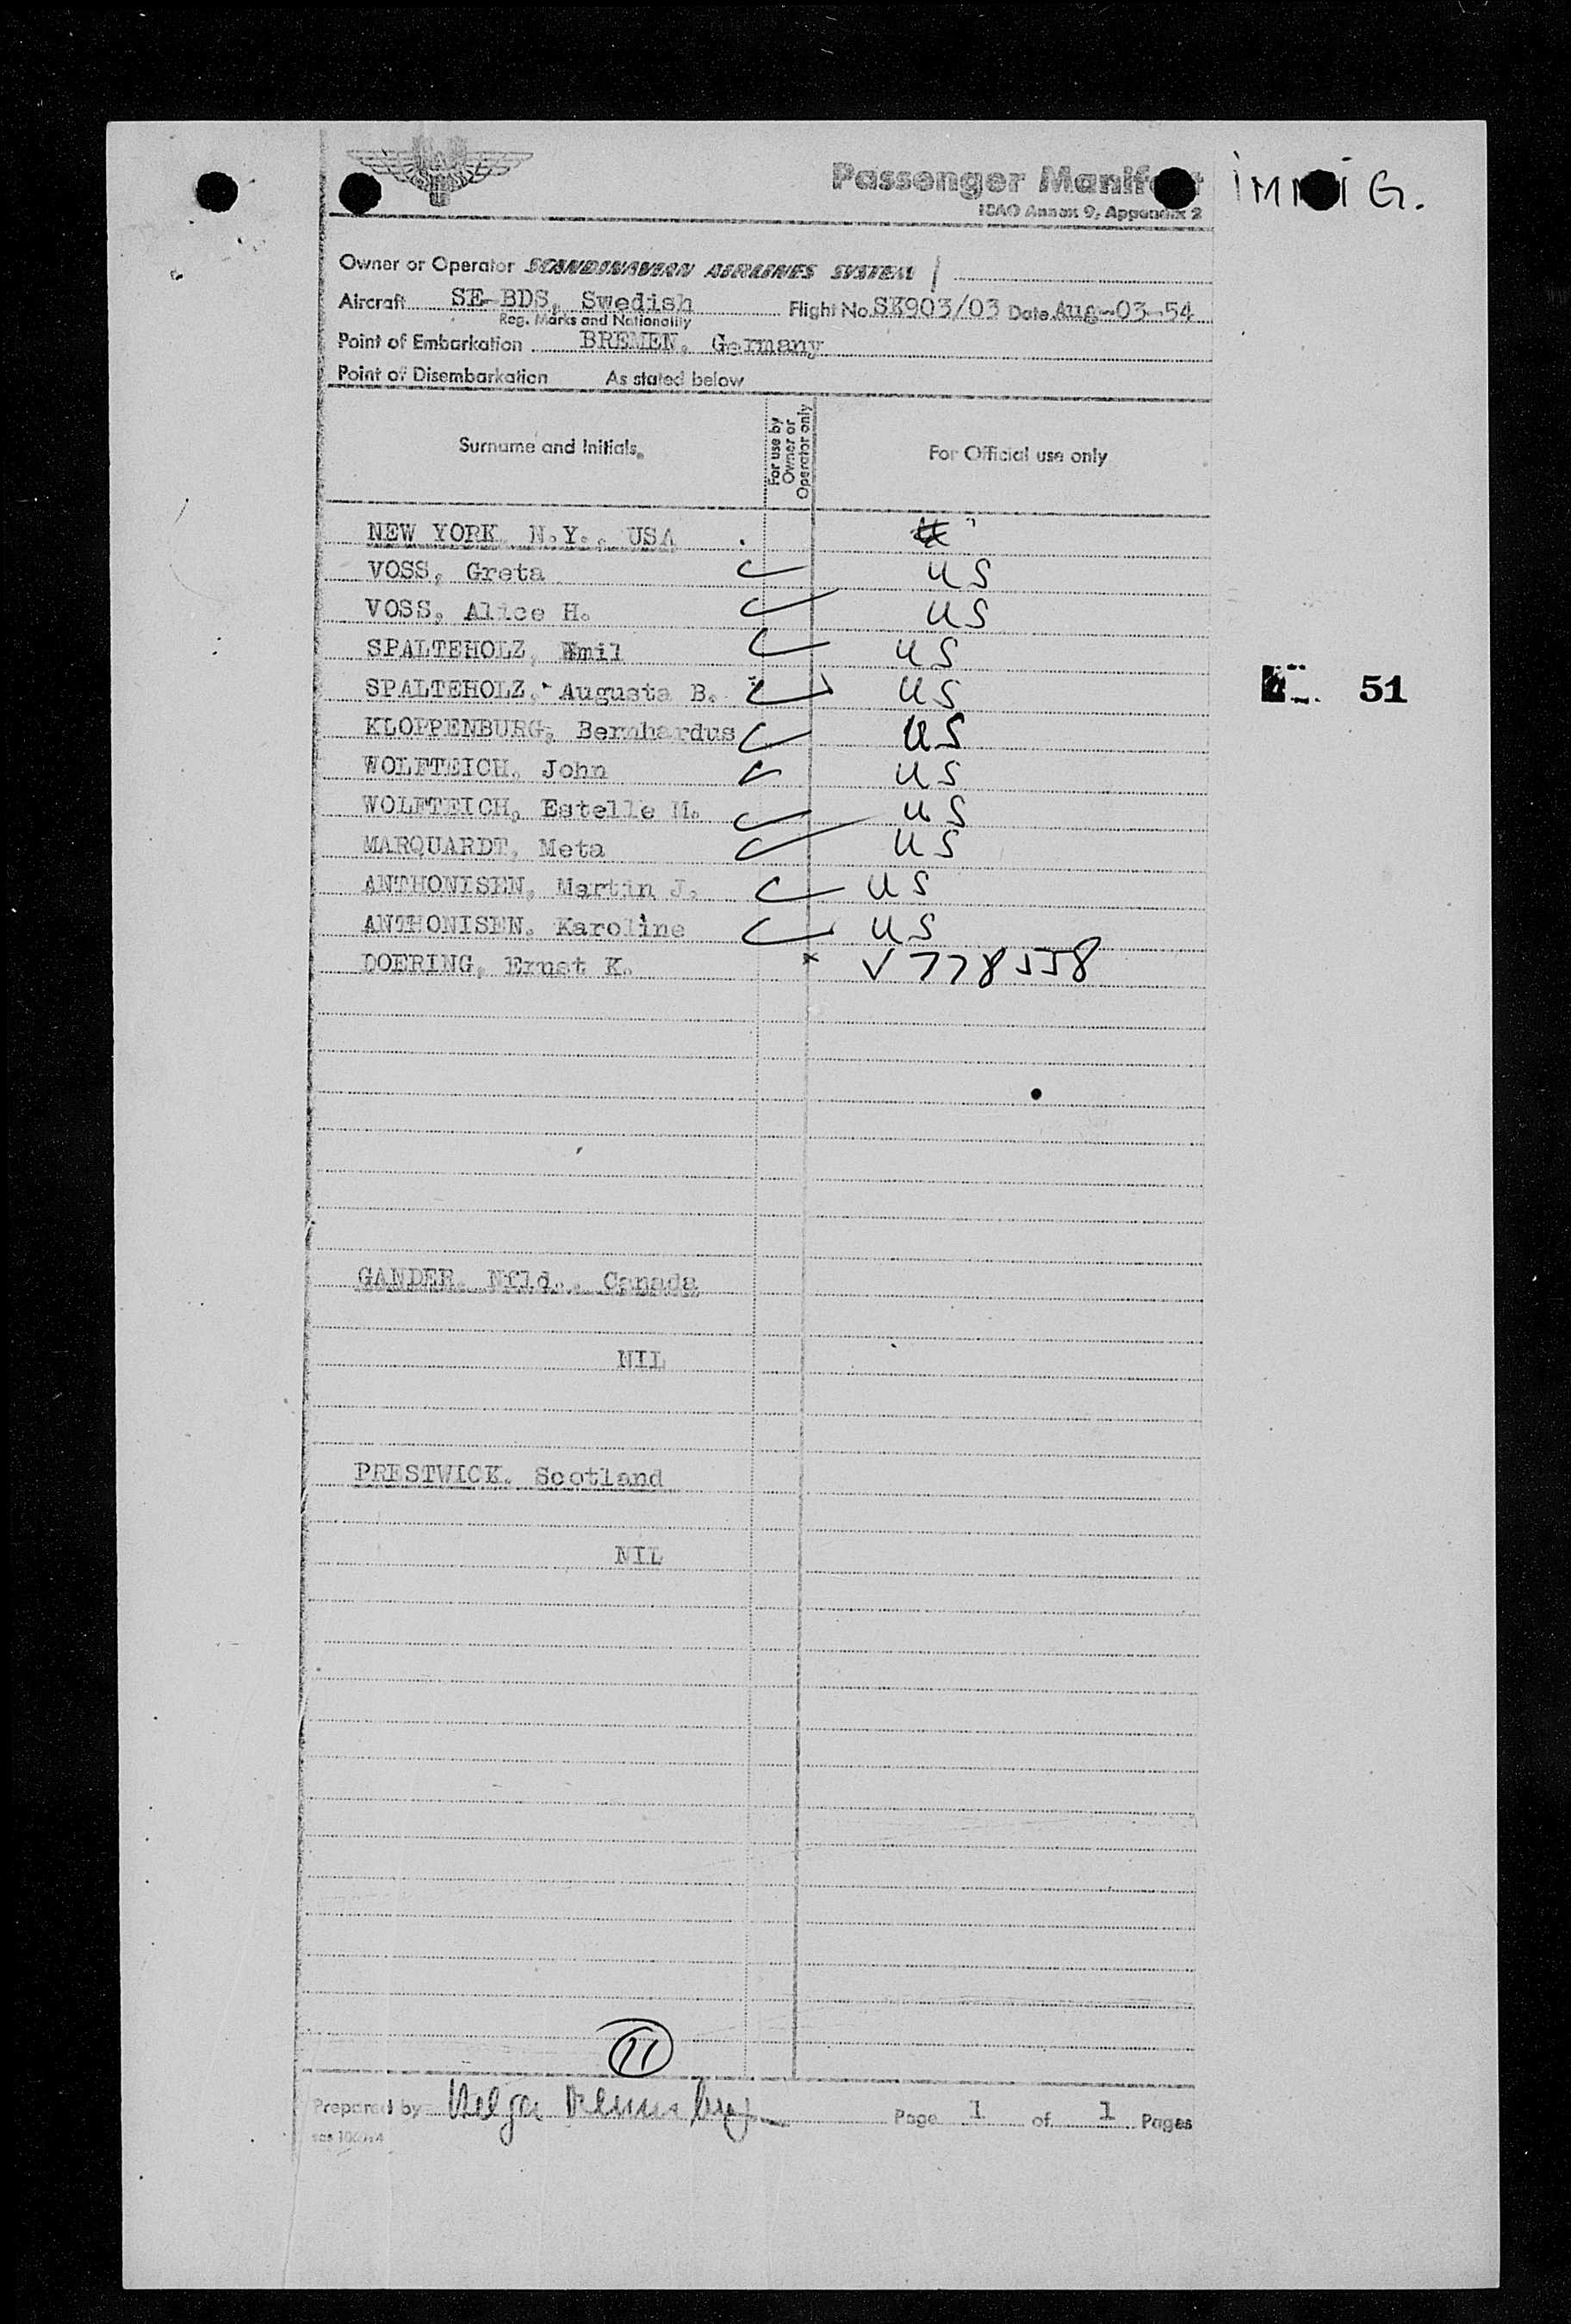 Passenger Manif
IMMIG.
ICAO Annex 9, Appendix 2
Owner or Operator SCANDINAVIAN AIRLINES SYSTEM
Aircraft SE-BDS, Swedish Flight No. SK903/03 Date Aug-03-54
Reg. Marks and Nationality
Point of Embarkation BREMEN, Germany
Point of Disembarkation As stated below
Surname and Initials.
For use by Owner or Operator only
For Official use only
NEW YORK, N.Y., USA
VOSS, Greta US
VOSS, Alice H. US
SPALTEHOLZ, Emil US
SPALTEHOLZ, Augusta B. US
51
KLOPPENBURG, Bernhardus US
WOLFTEICH, John US
WOLFTEICH, Estelle M. US
MARQUARDT, Meta US
ANTHONISEN, Martin J. US
ANTHONISEN, Karoline US
DOERING, Ernst K. * V778558
GANDER, Nfld., Canada
NIL
PRESTWICK, Scotland
NIL
11
Prepared by Helga Page 1 of 1 Pages